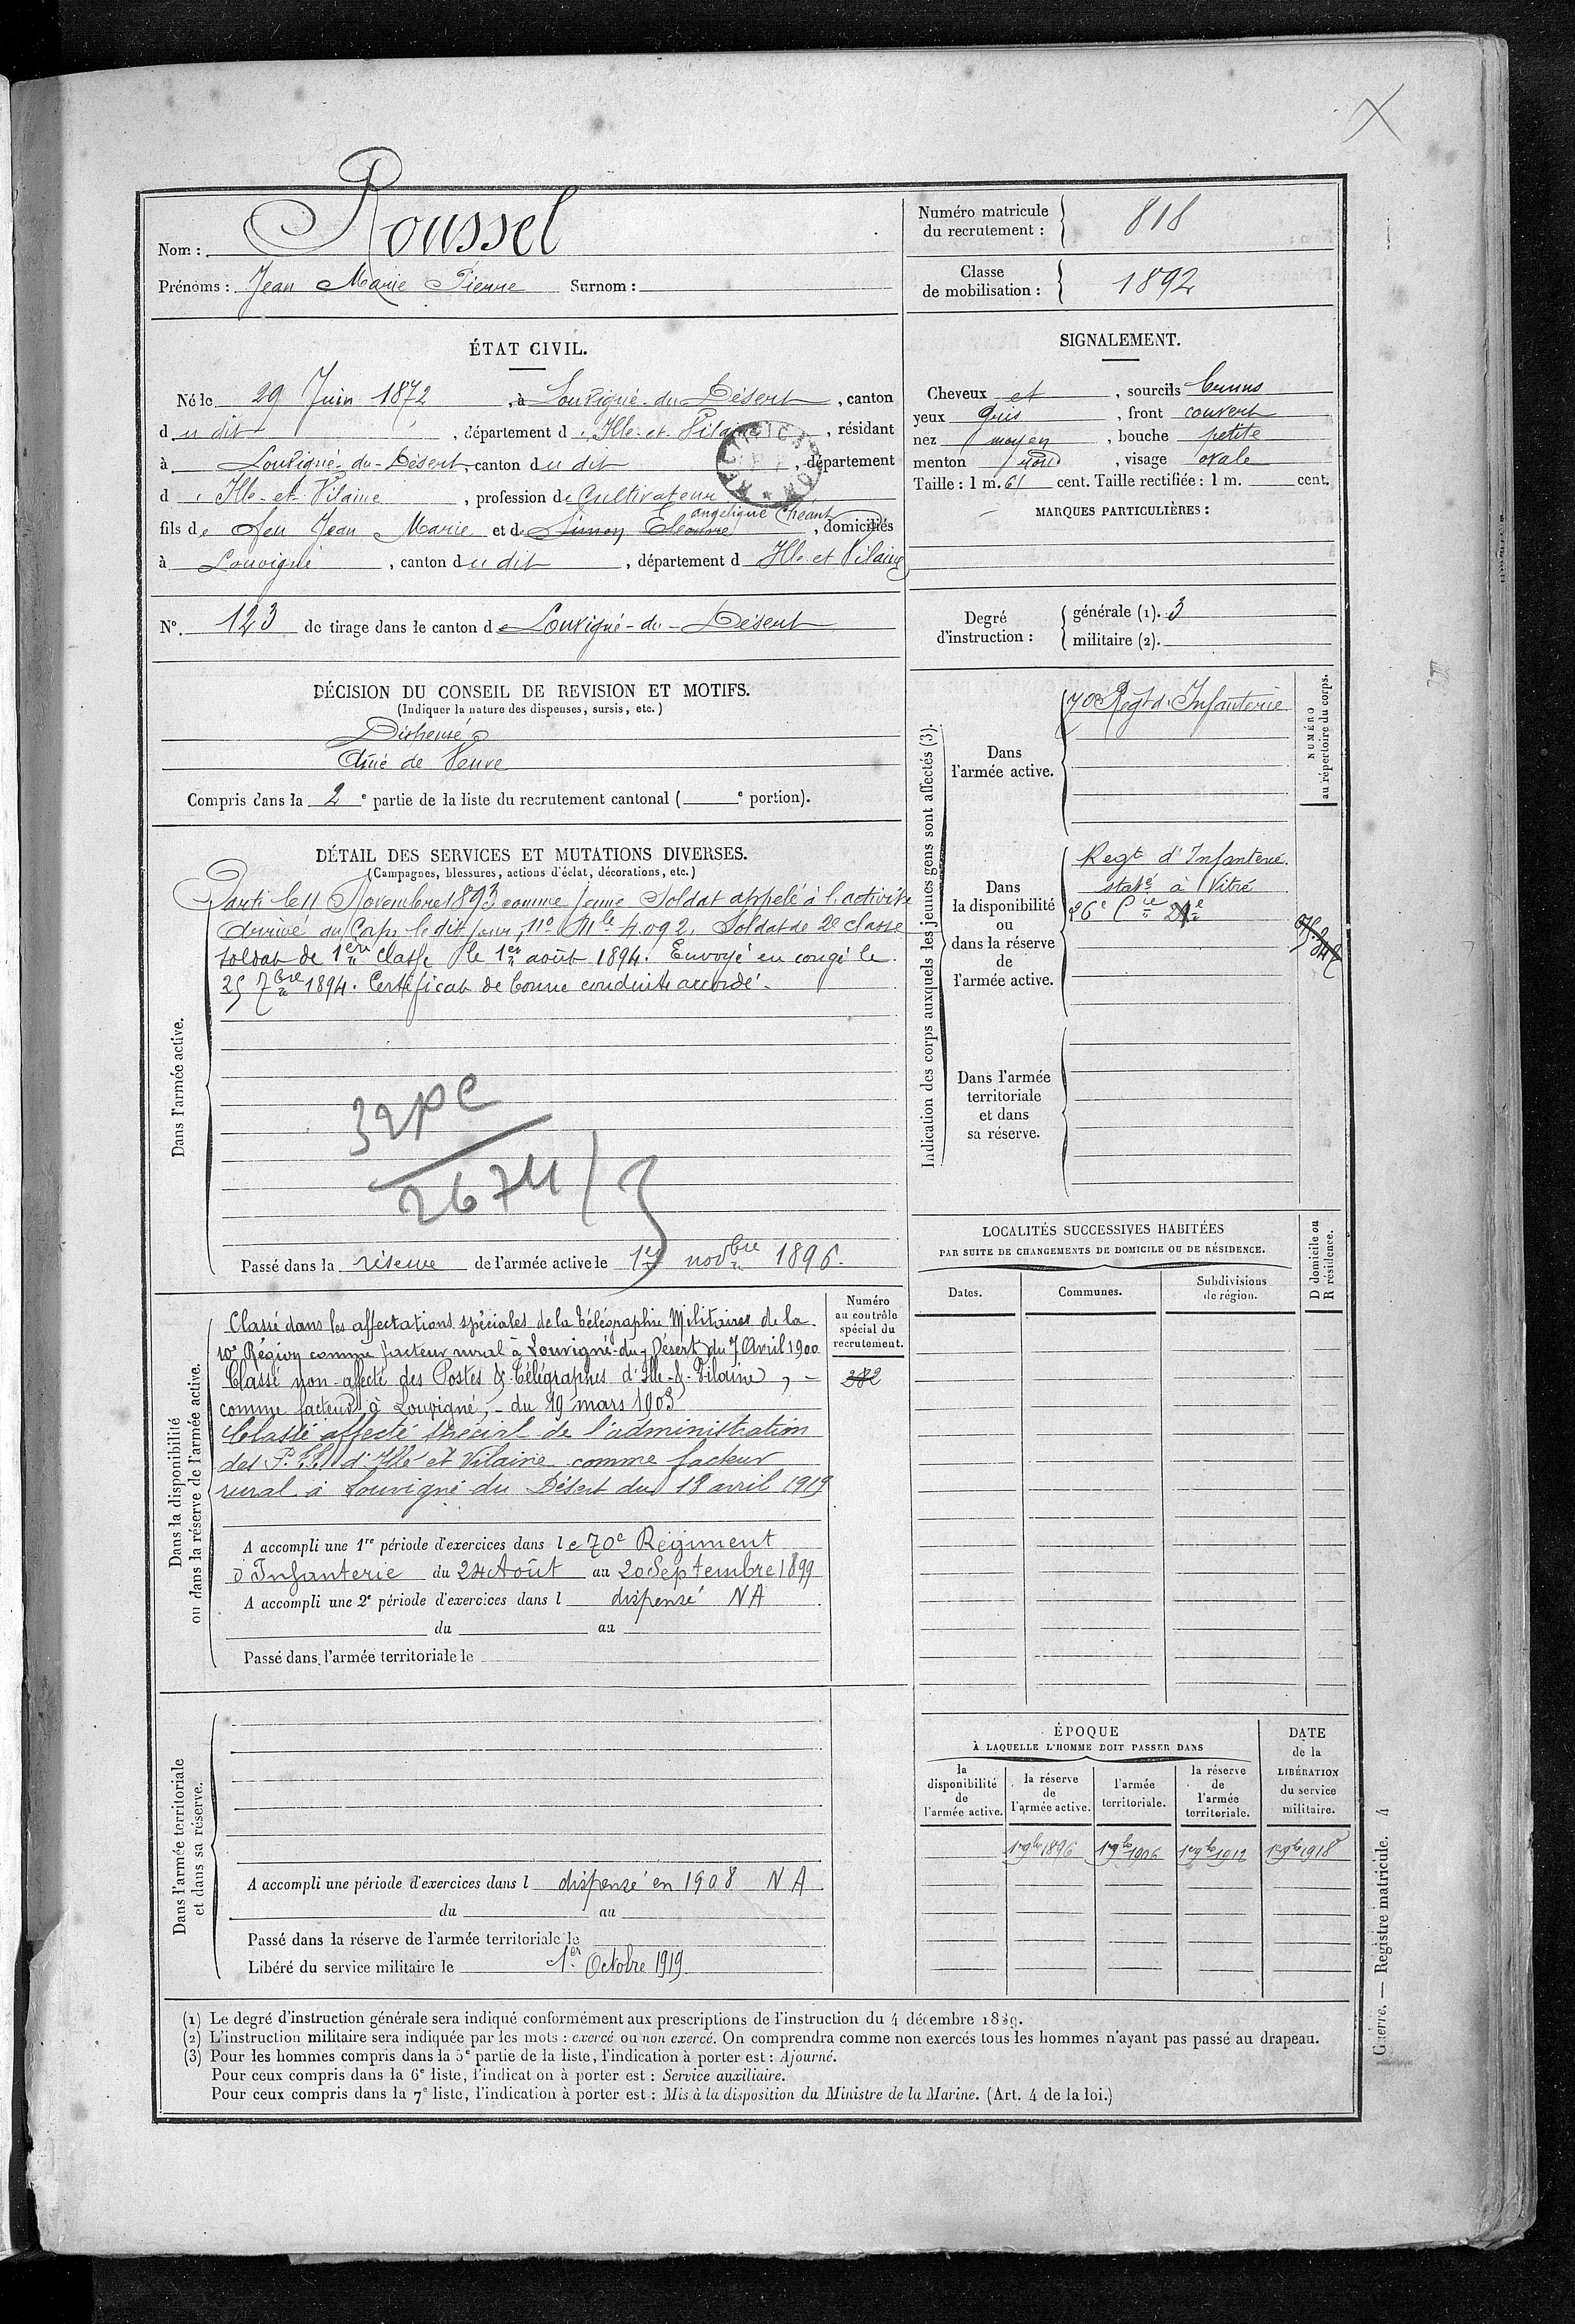 Nom : Roussel
Prénoms : Jean Marie Pierre Surnom :
Numéro matricule du recrutement : 818
Classe de mobilisation : 1892
ÉTAT CIVIL.
Né le 29 Juin 1872, à Louvigné-du-Désert, canton
du dit, département d'Ille-et-Vilaine, résidant
à Louvigné-du-Désert, canton du dit, département
d'Ille-et-Vilaine, profession de Cultivateur
angélique
fils de feu Jean Marie et de Simon Eléonore, domiciliés
à Louvigné, canton du dit, département d Ille et Vilaine
N°. 123 de tirage dans le canton de Louvigné-du-Désert
SIGNALEMENT.
Cheveux et, sourcils bruns
yeux gris, front couvert
nez moyen, bouche petite
menton rond, visage ovale
Taille : 1 m. 61 cent. Taille rectifiée : 1 m. cent.
MARQUES PARTICULIÈRES :
Degré d'instruction : générale (1). 3
militaire (2).
DÉCISION DU CONSEIL DE REVISION ET MOTIFS.
(Indiquer la nature des dispenses, sursis, etc.)
Dispensé
Aîné de Veuve
Compris dans la 2e partie de la liste du recrutement cantonal ( e portion).
DÉTAIL DES SERVICES ET MUTATIONS DIVERSES.
(Campagnes, blessures, actions d'éclat, décorations, etc.)
Dans l'armée active.
Parti le 11 Novembre 1893 comme jeune Soldat appelé à l'activité
Arrivé au Corps le dit jour, no Mle 4.092. Soldat de 2e classe
soldat de 1ere classe le 1er août 1894. Envoyé en congé le
25 7bre 1894. Certificat de bonne conduite accordé.
32pe
2674/3
Passé dans la réserve de l'armée active le 1er novbre 1896.
Indication des corps auxquels les jeunes gens sont affectés (3).
NUMÉRO au répertoire du corps.
Dans l'armée active.
70e Regt d'Infanterie
Dans la disponibilité ou dans la réserve de l'armée active.
Regt d'Infanterie
staté à Vitré
26e Cie
Dans l'armée territoriale et dans sa réserve.
Dans la disponibilité ou dans la réserve de l'armée active.
Numéro au contrôle spécial du recrutement.
282
Classé dans les affectations spéciales de la télégraphie Militaire de la
10e Région comme facteur rural à Louvigné-du-Désert du 7 Avril 1900
Classé non-affecté des Postes & Télégraphes d'Ille-&-Vilaine, -
comme facteur à Louvigné, - du 19 mars 1903
Classé affecté spécial de l'administration
des P.T.T. d'Ille et Vilaine comme facteur
rural à Louvigné du Désert du 18 avril 1919
A accompli une 1re période d'exercices dans le 70e Régiment
d'Infanterie du 24 Août au 20 Septembre 1899
A accompli une 2e période d'exercices dans l dispensé NA
du au
Passé dans l'armée territoriale le
LOCALITÉS SUCCESSIVES HABITÉES
PAR SUITE DE CHANGEMENTS DE DOMICILE OU DE RÉSIDENCE.
D domicile ou R résidence.
Dates. Communes. Subdivisions de région.
Dans l'armée territoriale et dans sa réserve.
A accompli une période d'exercices dans l dispensé en 1908 NA
du au
Passé dans la réserve de l'armée territoriale le
Libéré du service militaire le 1er Octobre 1919
ÉPOQUE
À LAQUELLE L'HOMME DOIT PASSER DANS
la disponibilité de l'armée active. la réserve de l'armée active. l'armée territoriale. la réserve de l'armée territoriale.
DATE de la LIBÉRATION du service militaire.
1er 9bre 1896 1er 9bre 1906 1er 9bre 1912 1er 9bre 1918
(1) Le degré d'instruction générale sera indiqué conformément aux prescriptions de l'instruction du 4 décembre 1889.
(2) L'instruction militaire sera indiquée par les mots : exercé ou non exercé. On comprendra comme non exercés tous les hommes n'ayant pas passé au drapeau.
(3) Pour les hommes compris dans la 5e partie de la liste, l'indication à porter est : Ajourné.
Pour ceux compris dans la 6e liste, l'indication à porter est : Service auxiliaire.
Pour ceux compris dans la 7e liste, l'indication à porter est : Mis à la disposition du Ministre de la Marine. (Art. 4 de la loi.)
Guerre. — Registre matricule. 4